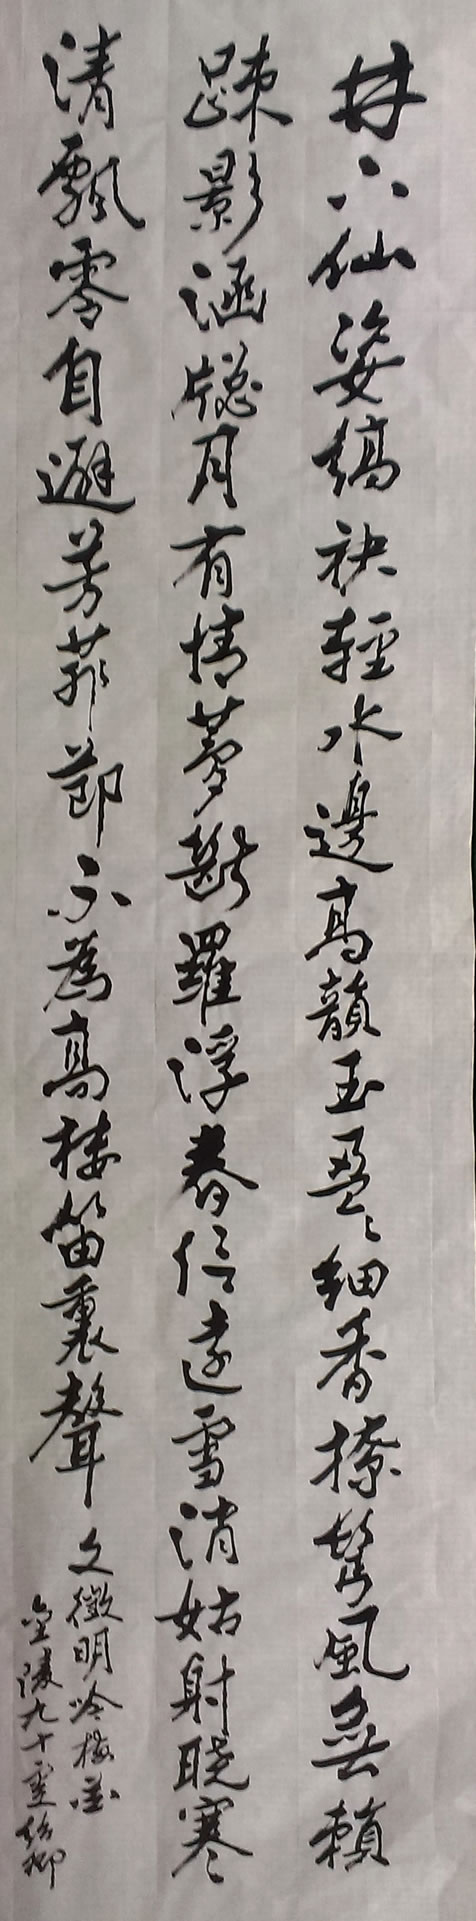 林下仙姿縞袂輕水邊高韻玉盈〻細香撩鬢風無賴
疎影涵窗月有情夢斷羅浮春信遠雪消姑射曉寒
清飄零自避芳菲節不為高樓笛裏聲
文徵明咏梅
金陵九十